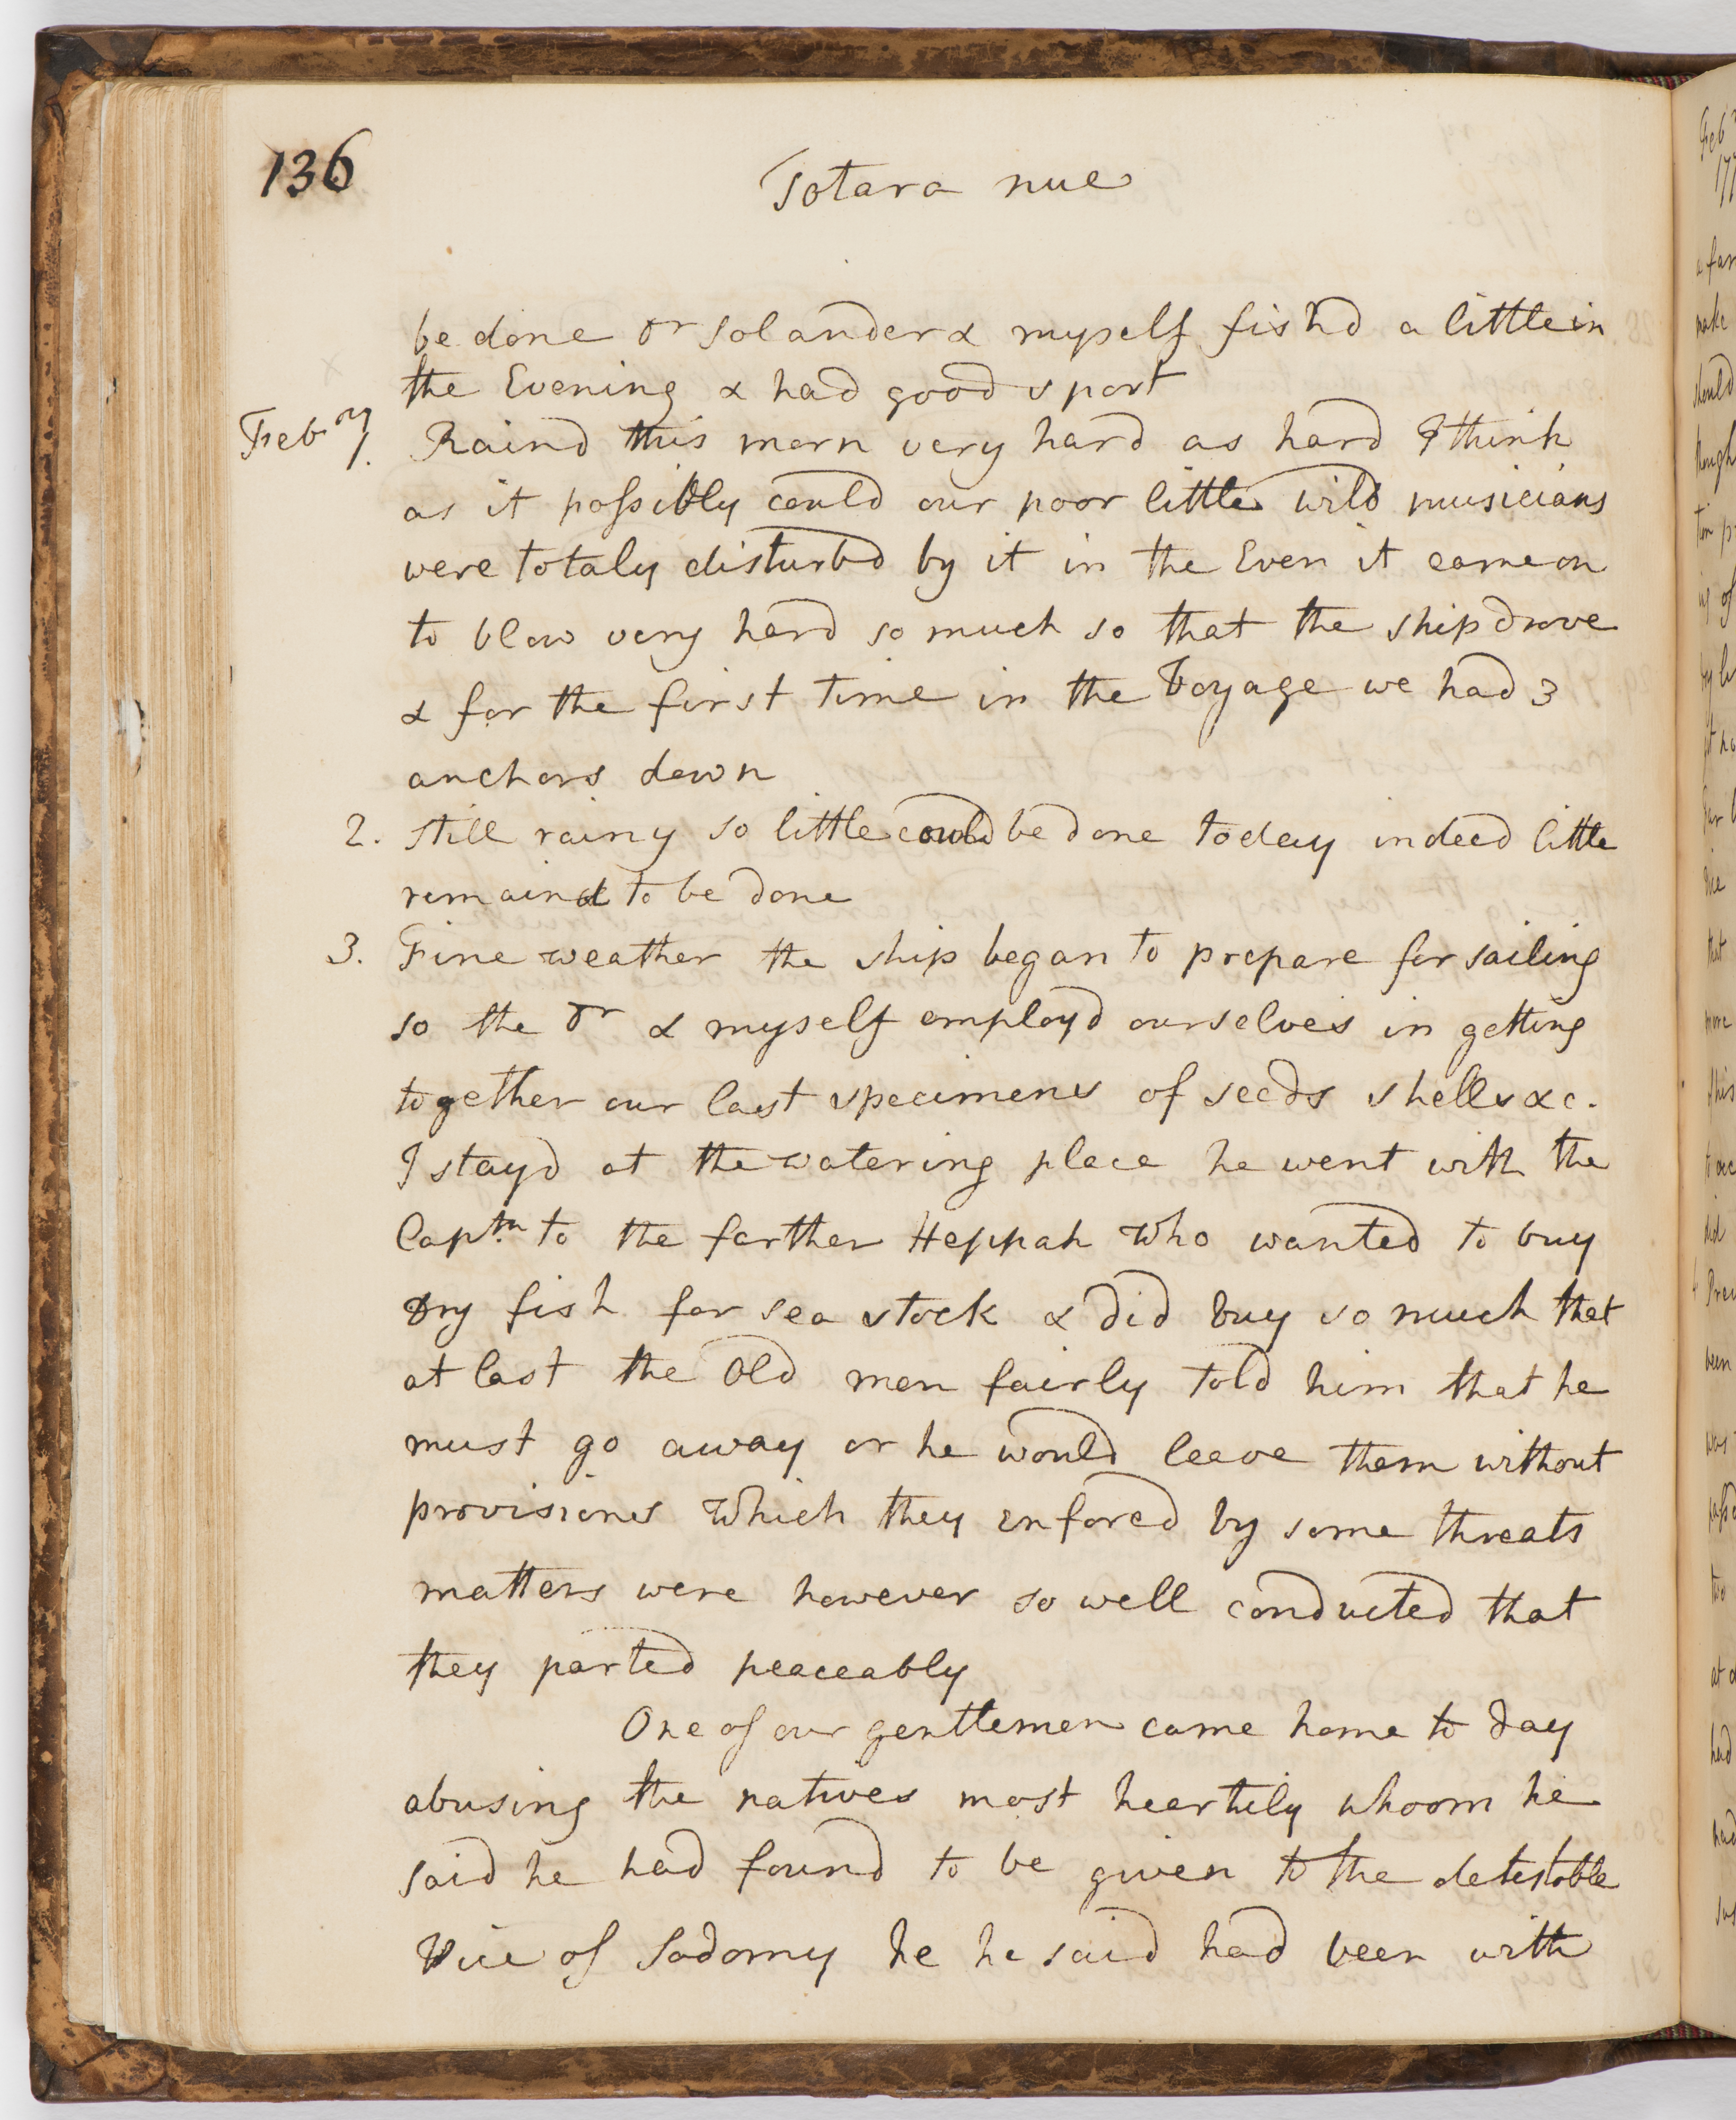 136
Totara nue
be done Dr Solander & myself fishd a little in
the Evening & had good sport
Febry 1. Raind this morn very hard as hard I think
as it possibly could our poor little wild musicians
were totaly disturbd by it in the Even it came on
to blow very hard so much so that the ship drove
& for the first time in the Voyage we had 3
anchors down
2. Still rainy so little could be done today indeed little
remaind to be done
3. Fine weather the ship began to prepare for sailing
so the Dr & myself employd ourselves in getting
together our last specimens of seeds shells &c.
I stayd at the watering place he went with the
Captn to the farther Heppah who wanted to buy
Dry fish for sea stock & did buy so much that
at last the Old men fairly told him that he
must go away or he would leave them without
provisions Which they enforcd by some threats
matters were however so well conducted that
they parted peaceably
One of our gentlemen came home to day
abusing the natives most heartily whoom he
said he had found to be given to the detestable
Vice of Sodomy he he said had been with